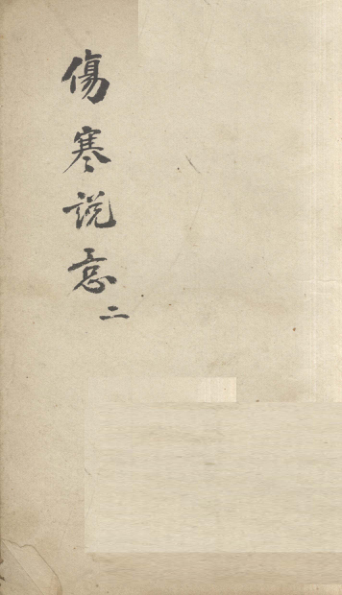 傷寒説意
二